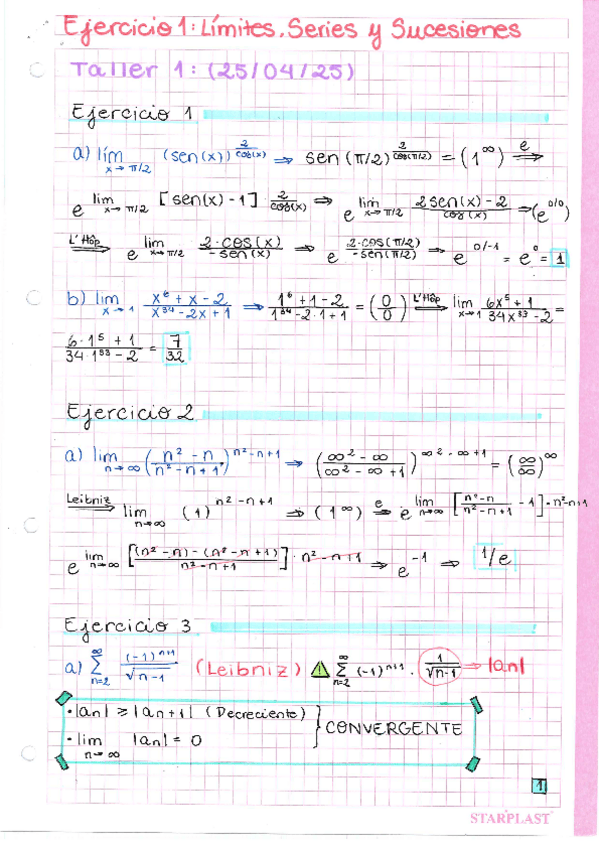 Ejercicio 1: Límites, Series y Sucesiones
Taller 1: (25/04/25)
Ejercicio 1
a) lím x→π/2 (sen(x))^(2/cos(x)) ⇒ sen(π/2)^(2/cos(π/2)) = (1^∞) ⇒e
e^(lim x→π/2 [sen(x) - 1] 2/cos(x)) ⇒ e^(lim x→π/2 (2sen(x) - 2)/cos(x)) ⇒ (e^(0/0))
L'Hôp ⇒ e^(lim x→π/2 2·cos(x)/-sen(x)) → e^(2·cos(π/2)/-sen(π/2)) → e^(0/-1) = e^0 = 1
b) lim x→1 (x^6 + x - 2)/(x^34 - 2x + 1) ⇒ (1^6 + 1 - 2)/(1^34 - 2·1 + 1) = (0/0) L'Hôp ⇒ lim x→1 (6x^5 + 1)/(34x^33 - 2) =
(6·1^5 + 1)/(34·1^33 - 2) = 7/32
Ejercicio 2
a) lim n→∞ ((n² - n)/(n² - n + 1))^(n² - n + 1) ⇒ ((∞² - ∞)/(∞² - ∞ + 1))^(∞² - ∞ + 1) = (∞/∞)^∞
Leibniz ⇒ lim n→∞ (1)^(n² - n + 1) ⇒ (1^∞) ⇒e e^(lim n→∞ [(n² - n)/(n² - n + 1) - 1]·n² - n + 1)
e^(lim n→∞ [((n² - n) - (n² - n + 1))/(n² - n + 1)]·n² - n + 1) ⇒ e^-1 ⇒ 1/e
Ejercicio 3
a) ∑ n=2 ∞ (-1)^(n+1)/√(n-1) (Leibniz) ⚠ ∑ n=2 ∞ (-1)^(n+1) · 1/√(n-1) ⇒ |an|
· |an| ≥ |an+1| (Decreciente) } CONVERGENTE
· lim n→∞ |an| = 0
1
STARPLAST